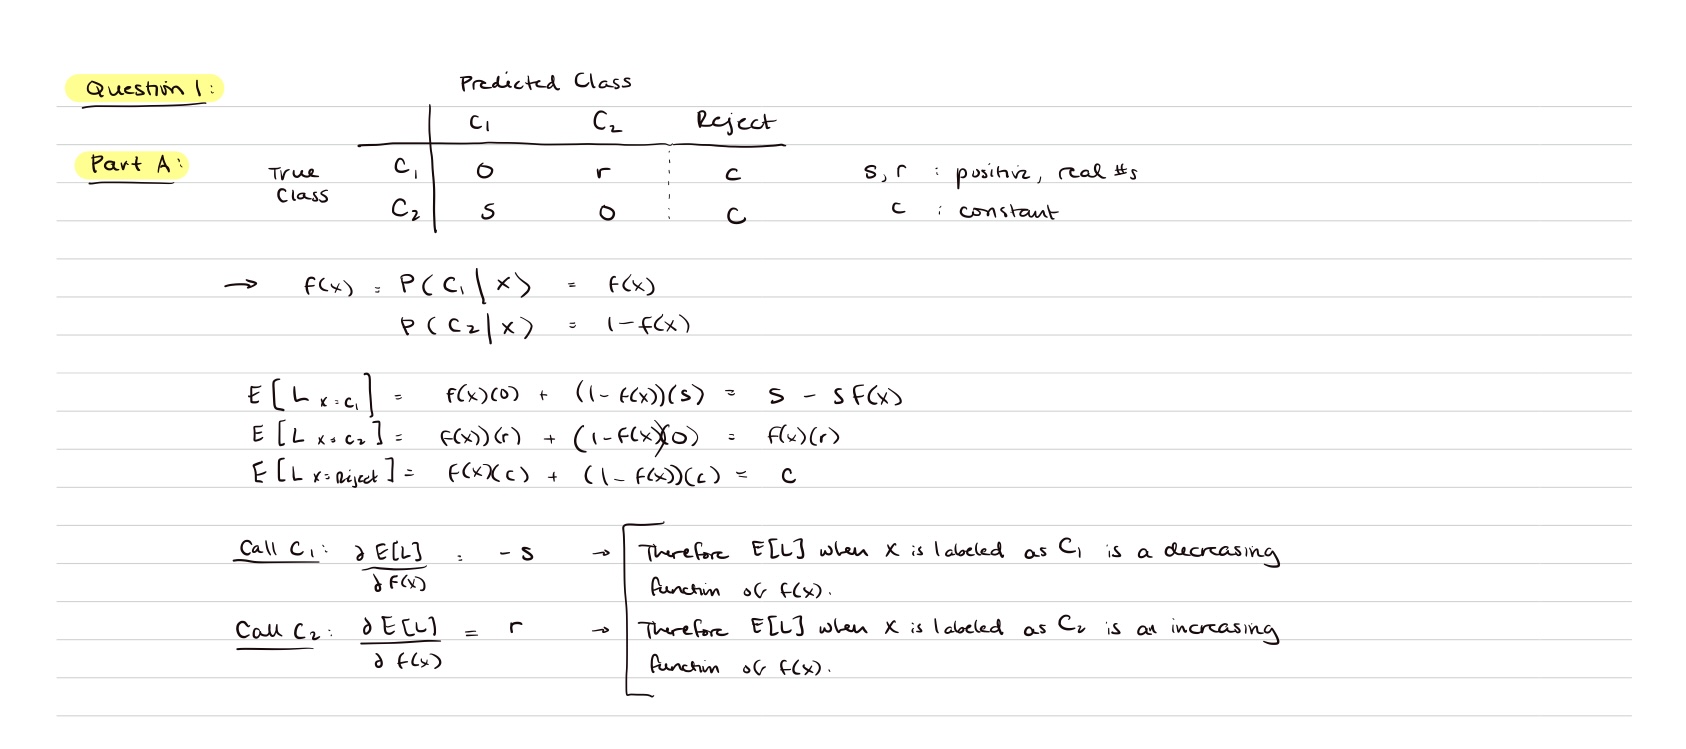 Question 1:
Predicted Class
C₁ C₂ Reject
Part A:
True Class C₁ 0 r c s, r : positive, real #s
C₂ s 0 c c : constant
→ f(x) = P(C₁ | x) = f(x)
P(C₂ | x) = 1-f(x)
E[L x=c₁] = f(x)(0) + (1-f(x))(s) = s - sf(x)
E[L x=c₂] = f(x))(r) + (1-f(x))(0) = f(x)(r)
E[L x=Reject] = f(x)(c) + (1-f(x))(c) = c
Call C₁: ∂E[L]/∂f(x) = -s → Therefore E[L] when x is labeled as C₁ is a decreasing
function of f(x).
Call C₂: ∂E[L]/∂f(x) = r → Therefore E[L] when x is labeled as C₂ is an increasing
function of f(x).